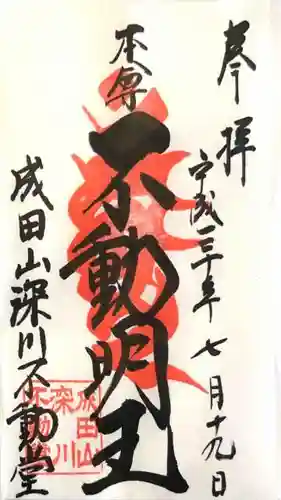 奉拝
平成三十年七月十九日
本尊
不動明王
成田山深川不動堂
成田山
深川
不動堂